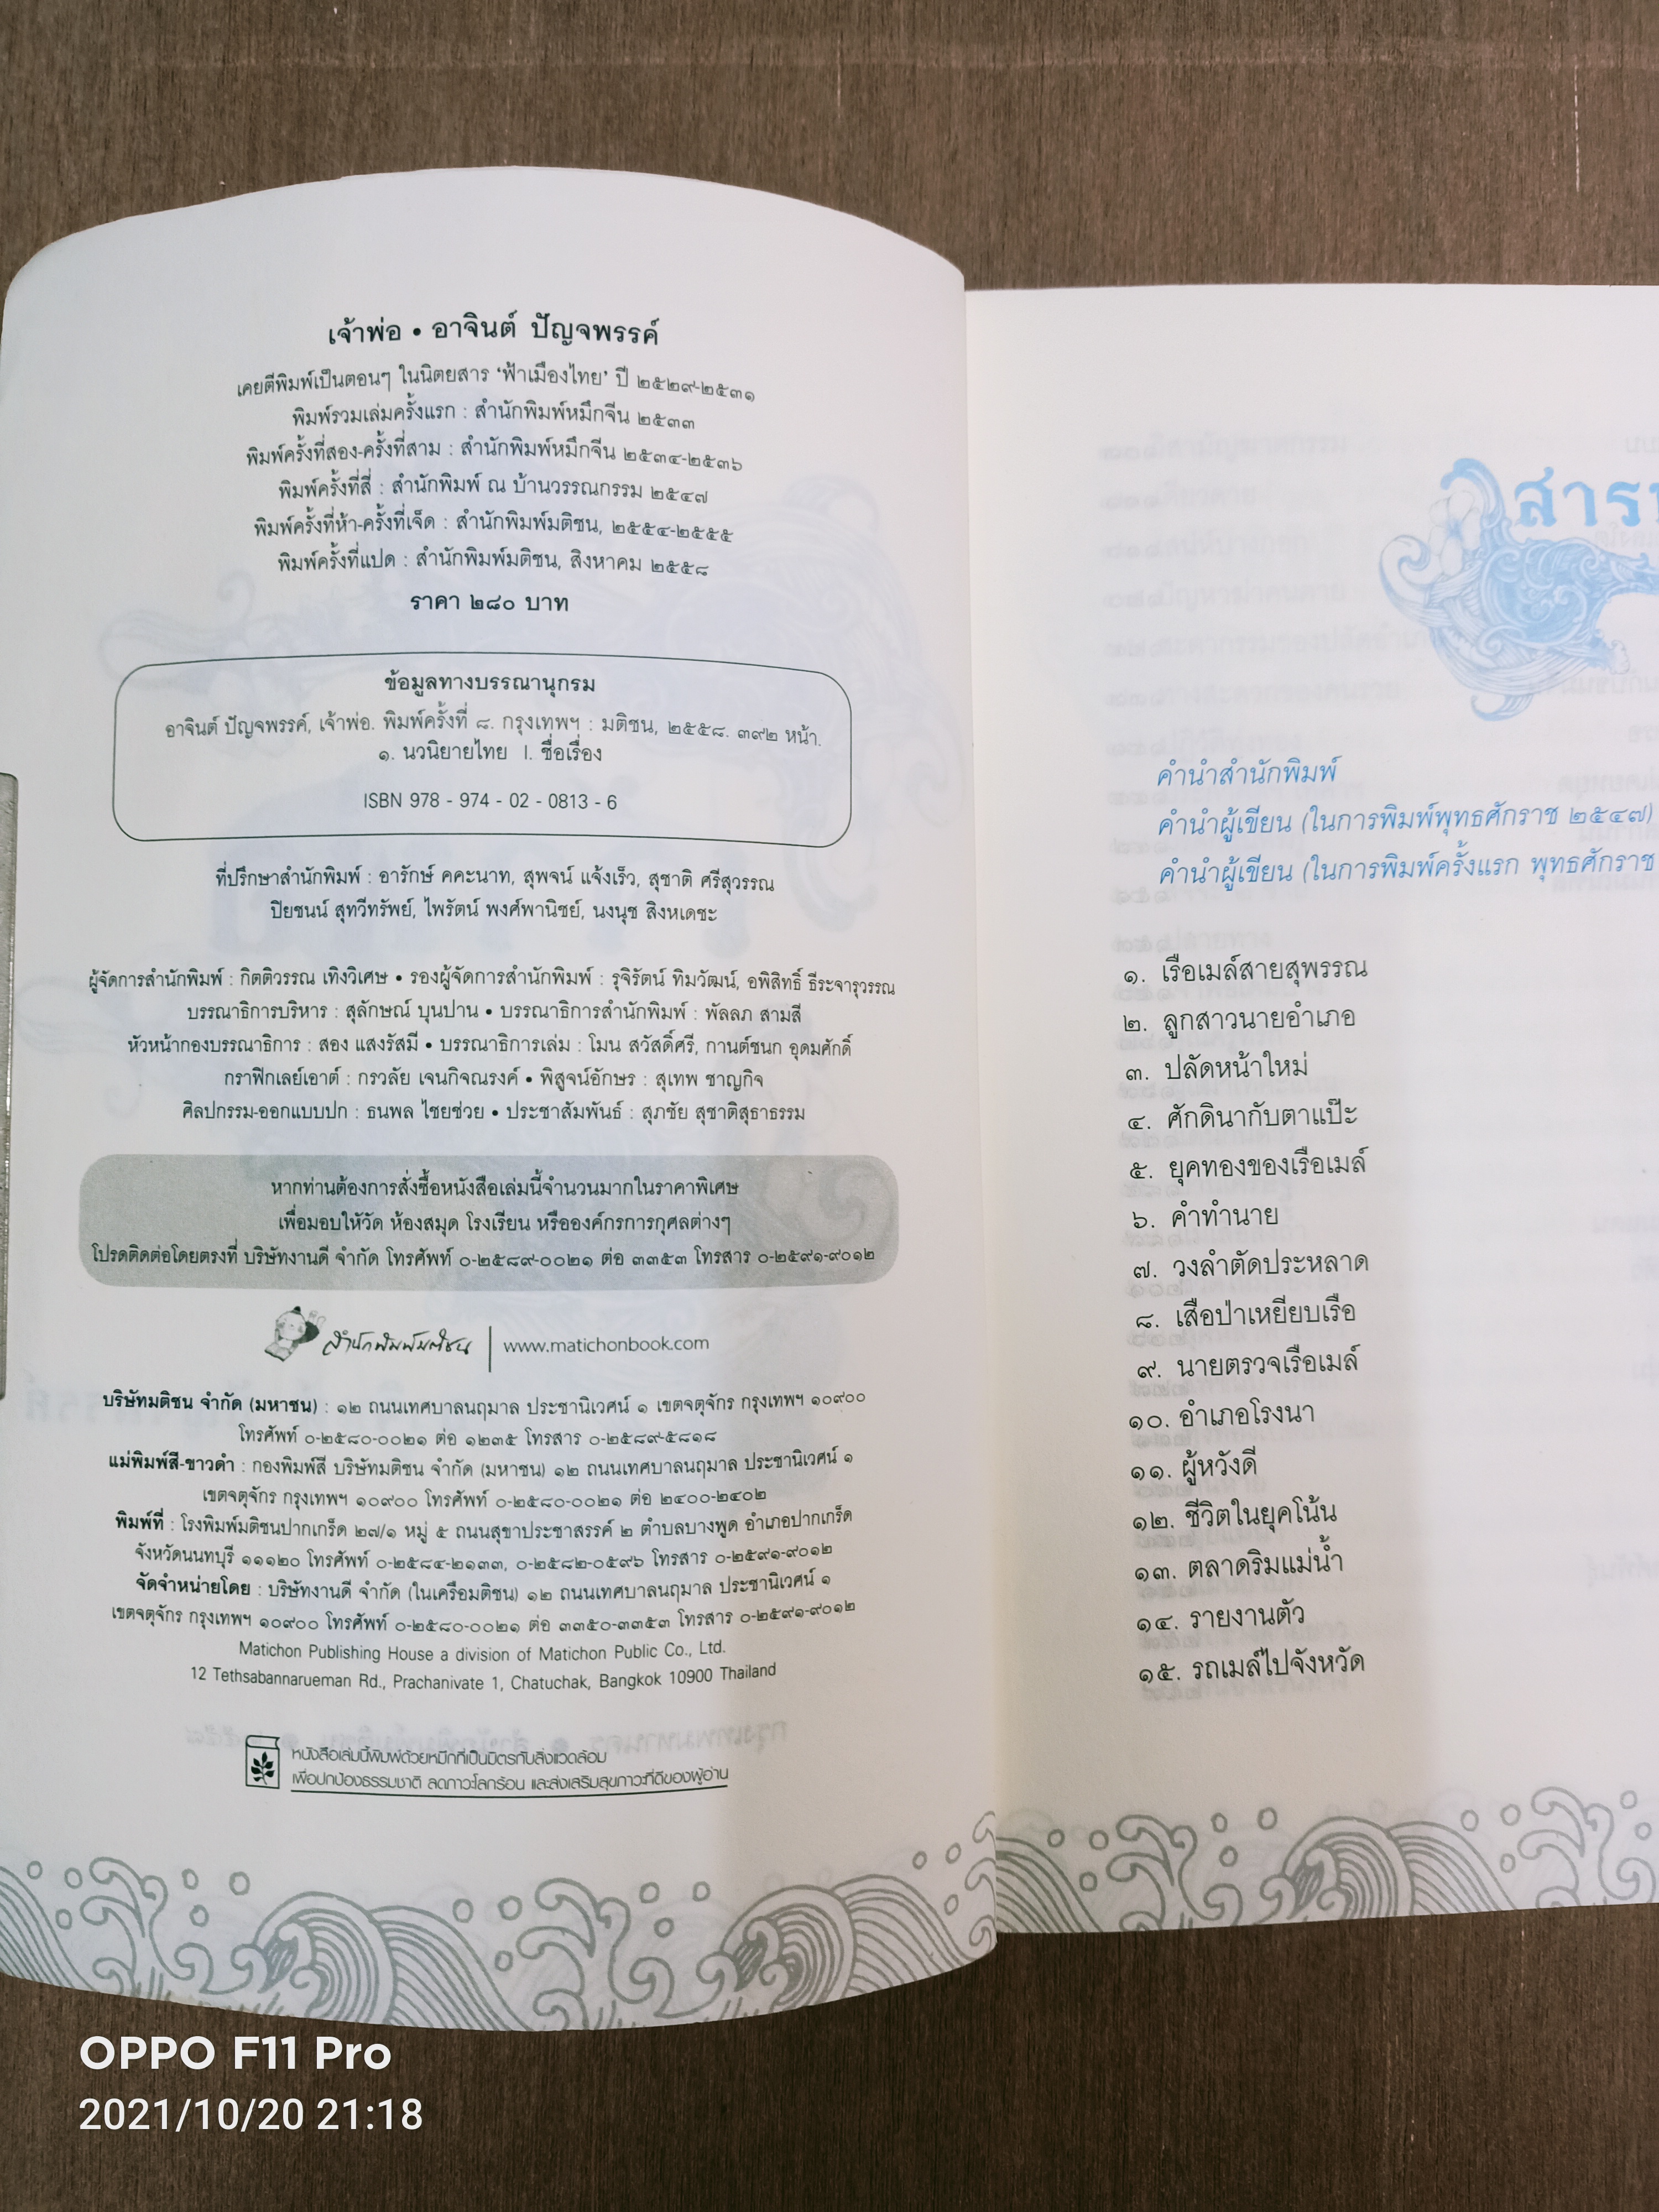 เจ้าพ่อ • อาจินต์ ปัญจพรรค์
เคยตีพิมพ์เป็นตอนๆ ในนิตยสาร ‘ฟ้าเมืองไทย’ ปี ๒๕๒๙-๒๕๓๑
พิมพ์รวมเล่มครั้งแรก : สำนักพิมพ์หมึกจีน ๒๕๓๓
พิมพ์ครั้งที่สอง-ครั้งที่สาม : สำนักพิมพ์หมึกจีน ๒๕๓๔-๒๕๓๖
พิมพ์ครั้งที่สี่ : สำนักพิมพ์ ณ บ้านวรรณกรรม ๒๕๔๗
พิมพ์ครั้งที่ห้า-ครั้งที่เจ็ด : สำนักพิมพ์มติชน, ๒๕๕๔-๒๕๕๕
พิมพ์ครั้งที่แปด : สำนักพิมพ์มติชน, สิงหาคม ๒๕๕๘
ราคา ๒๘๐ บาท
ข้อมูลทางบรรณานุกรม
อาจินต์ ปัญจพรรค์, เจ้าพ่อ. พิมพ์ครั้งที่ ๘. กรุงเทพฯ : มติชน, ๒๕๕๘. ๓๙๒ หน้า.
๑. นวนิยายไทย I. ชื่อเรื่อง
ISBN 978 - 974 - 02 - 0813 - 6
ที่ปรึกษาสำนักพิมพ์ : อารักษ์ คคะนาท, สุพจน์ แจ้งเร็ว, สุชาติ ศรีสุวรรณ
ปิยชนน์ สุทวีทรัพย์, ไพรัตน์ พงศ์พานิชย์, นงนุช สิงหเดชะ
ผู้จัดการสำนักพิมพ์ : กิตติวรรณ เทิงวิเศษ • รองผู้จัดการสำนักพิมพ์ : รุจิรัตน์ ทิมวัฒน์, อพิสิทธิ์ ธีระจารุวรรณ
บรรณาธิการบริหาร : สุลักษณ์ บุนปาน • บรรณาธิการสำนักพิมพ์ : พัลลภ สามสี
หัวหน้ากองบรรณาธิการ : สอง แสงรัสมี • บรรณาธิการเล่ม : โมน สวัสดิ์ศรี, กานต์ชนก อุดมศักดิ์
กราฟิกเลย์เอาต์ : กรวลัย เจนกิจณรงค์ • พิสูจน์อักษร : สุเทพ ชาญกิจ
ศิลปกรรม-ออกแบบปก : ธนพล ไชยช่วย • ประชาสัมพันธ์ : สุภชัย สุชาติสุธาธรรม
หากท่านต้องการสั่งซื้อหนังสือเล่มนี้จำนวนมากในราคาพิเศษ
เพื่อมอบให้วัด ห้องสมุด โรงเรียน หรือองค์กรการกุศลต่างๆ
โปรดติดต่อโดยตรงที่ บริษัทงานดี จำกัด โทรศัพท์ ๐-๒๕๘๙-๐๐๒๑ ต่อ ๓๓๕๓ โทรสาร ๐-๒๕๙๑-๙๐๑๒
สำนักพิมพ์มติชน | www.matichonbook.com
บริษัทมติชน จำกัด (มหาชน) : ๑๒ ถนนเทศบาลนฤมาล ประชานิเวศน์ ๑ เขตจตุจักร กรุงเทพฯ ๑๐๙๐๐
โทรศัพท์ ๐-๒๕๘๐-๐๐๒๑ ต่อ ๑๒๓๕ โทรสาร ๐-๒๕๘๙-๕๘๑๘
แม่พิมพ์สี-ขาวดำ : กองพิมพ์สี บริษัทมติชน จำกัด (มหาชน) ๑๒ ถนนเทศบาลนฤมาล ประชานิเวศน์ ๑
เขตจตุจักร กรุงเทพฯ ๑๐๙๐๐ โทรศัพท์ ๐-๒๕๘๐-๐๐๒๑ ต่อ ๒๔๐๐-๒๔๐๒
พิมพ์ที่ : โรงพิมพ์มติชนปากเกร็ด ๒๗/๑ หมู่ ๕ ถนนสุขาประชาสรรค์ ๒ ตำบลบางพูด อำเภอปากเกร็ด
จังหวัดนนทบุรี ๑๑๑๒๐ โทรศัพท์ ๐-๒๕๘๔-๒๑๓๓, ๐-๒๕๘๒-๐๕๙๖ โทรสาร ๐-๒๕๙๑-๙๐๑๒
จัดจำหน่ายโดย : บริษัทงานดี จำกัด (ในเครือมติชน) ๑๒ ถนนเทศบาลนฤมาล ประชานิเวศน์ ๑
เขตจตุจักร กรุงเทพฯ ๑๐๙๐๐ โทรศัพท์ ๐-๒๕๘๐-๐๐๒๑ ต่อ ๓๓๕๐-๓๓๕๓ โทรสาร ๐-๒๕๙๑-๙๐๑๒
Matichon Publishing House a division of Matichon Public Co., Ltd.
12 Tethsabannarueman Rd., Prachanivate 1, Chatuchak, Bangkok 10900 Thailand
หนังสือเล่มนี้พิมพ์ด้วยหมึกที่เป็นมิตรกับสิ่งแวดล้อม
เพื่อปกป้องธรรมชาติ ลดภาวะโลกร้อน และส่งเสริมสุขภาวะที่ดีของผู้อ่าน
คำนำสำนักพิมพ์
คำนำผู้เขียน (ในการพิมพ์พุทธศักราช ๒๕๔๗)
คำนำผู้เขียน (ในการพิมพ์ครั้งแรก พุทธศักราช
๑. เรือเมล์สายสุพรรณ
๒. ลูกสาวนายอำเภอ
๓. ปลัดหน้าใหม่
๔. ศักดินากับตาแป๊ะ
๕. ยุคทองของเรือเมล์
๖. คำทำนาย
๗. วงลำตัดประหลาด
๘. เสือป่าเหยียบเรือ
๙. นายตรวจเรือเมล์
๑๐. อำเภอโรงนา
๑๑. ผู้หวังดี
๑๒. ชีวิตในยุคโน้น
๑๓. ตลาดริมแม่น้ำ
๑๔. รายงานตัว
๑๕. รถเมล์ไปจังหวัด
OPPO F11 Pro
2021/10/20 21:18